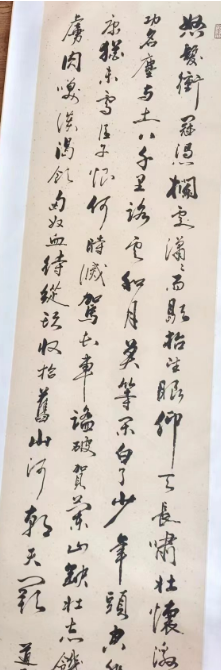 怒髮衝冠憑欄處瀟瀟雨歇抬望眼仰天長嘯壯懷激
功名塵與土八千里路雲和月莫等閒白了少年頭空
康恥猶未雪臣子恨何時滅駕長車踏破賀蘭山缺壯志饑
虜肉笑談渴飲匈奴血待從頭收拾舊山河朝天闕